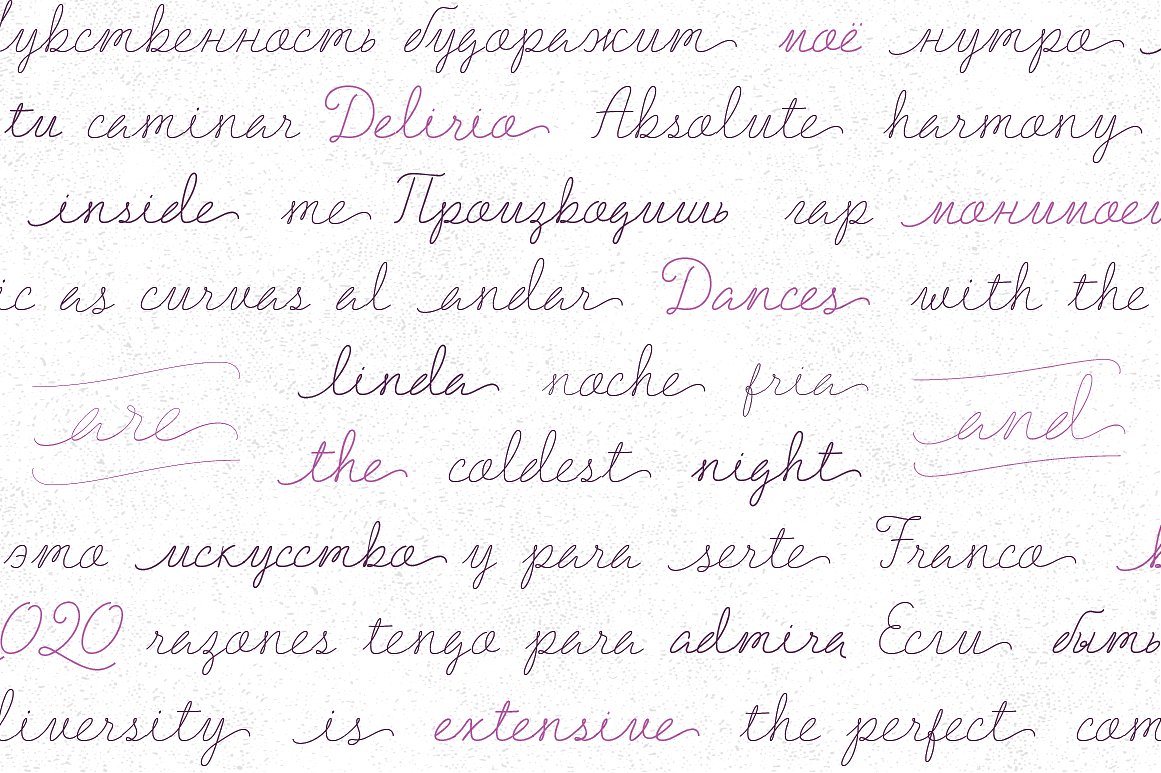 увственность будоражит моё нутро
tu caminar Delirio Absolute harmony
inside me Производишь гар
ic as curvas al andar Dances with the
linda noche fria
are and
the coldest night
это искусство y para serte Franco
2020 razones tengo para admira Если быть
iversity is extensive the perfect com